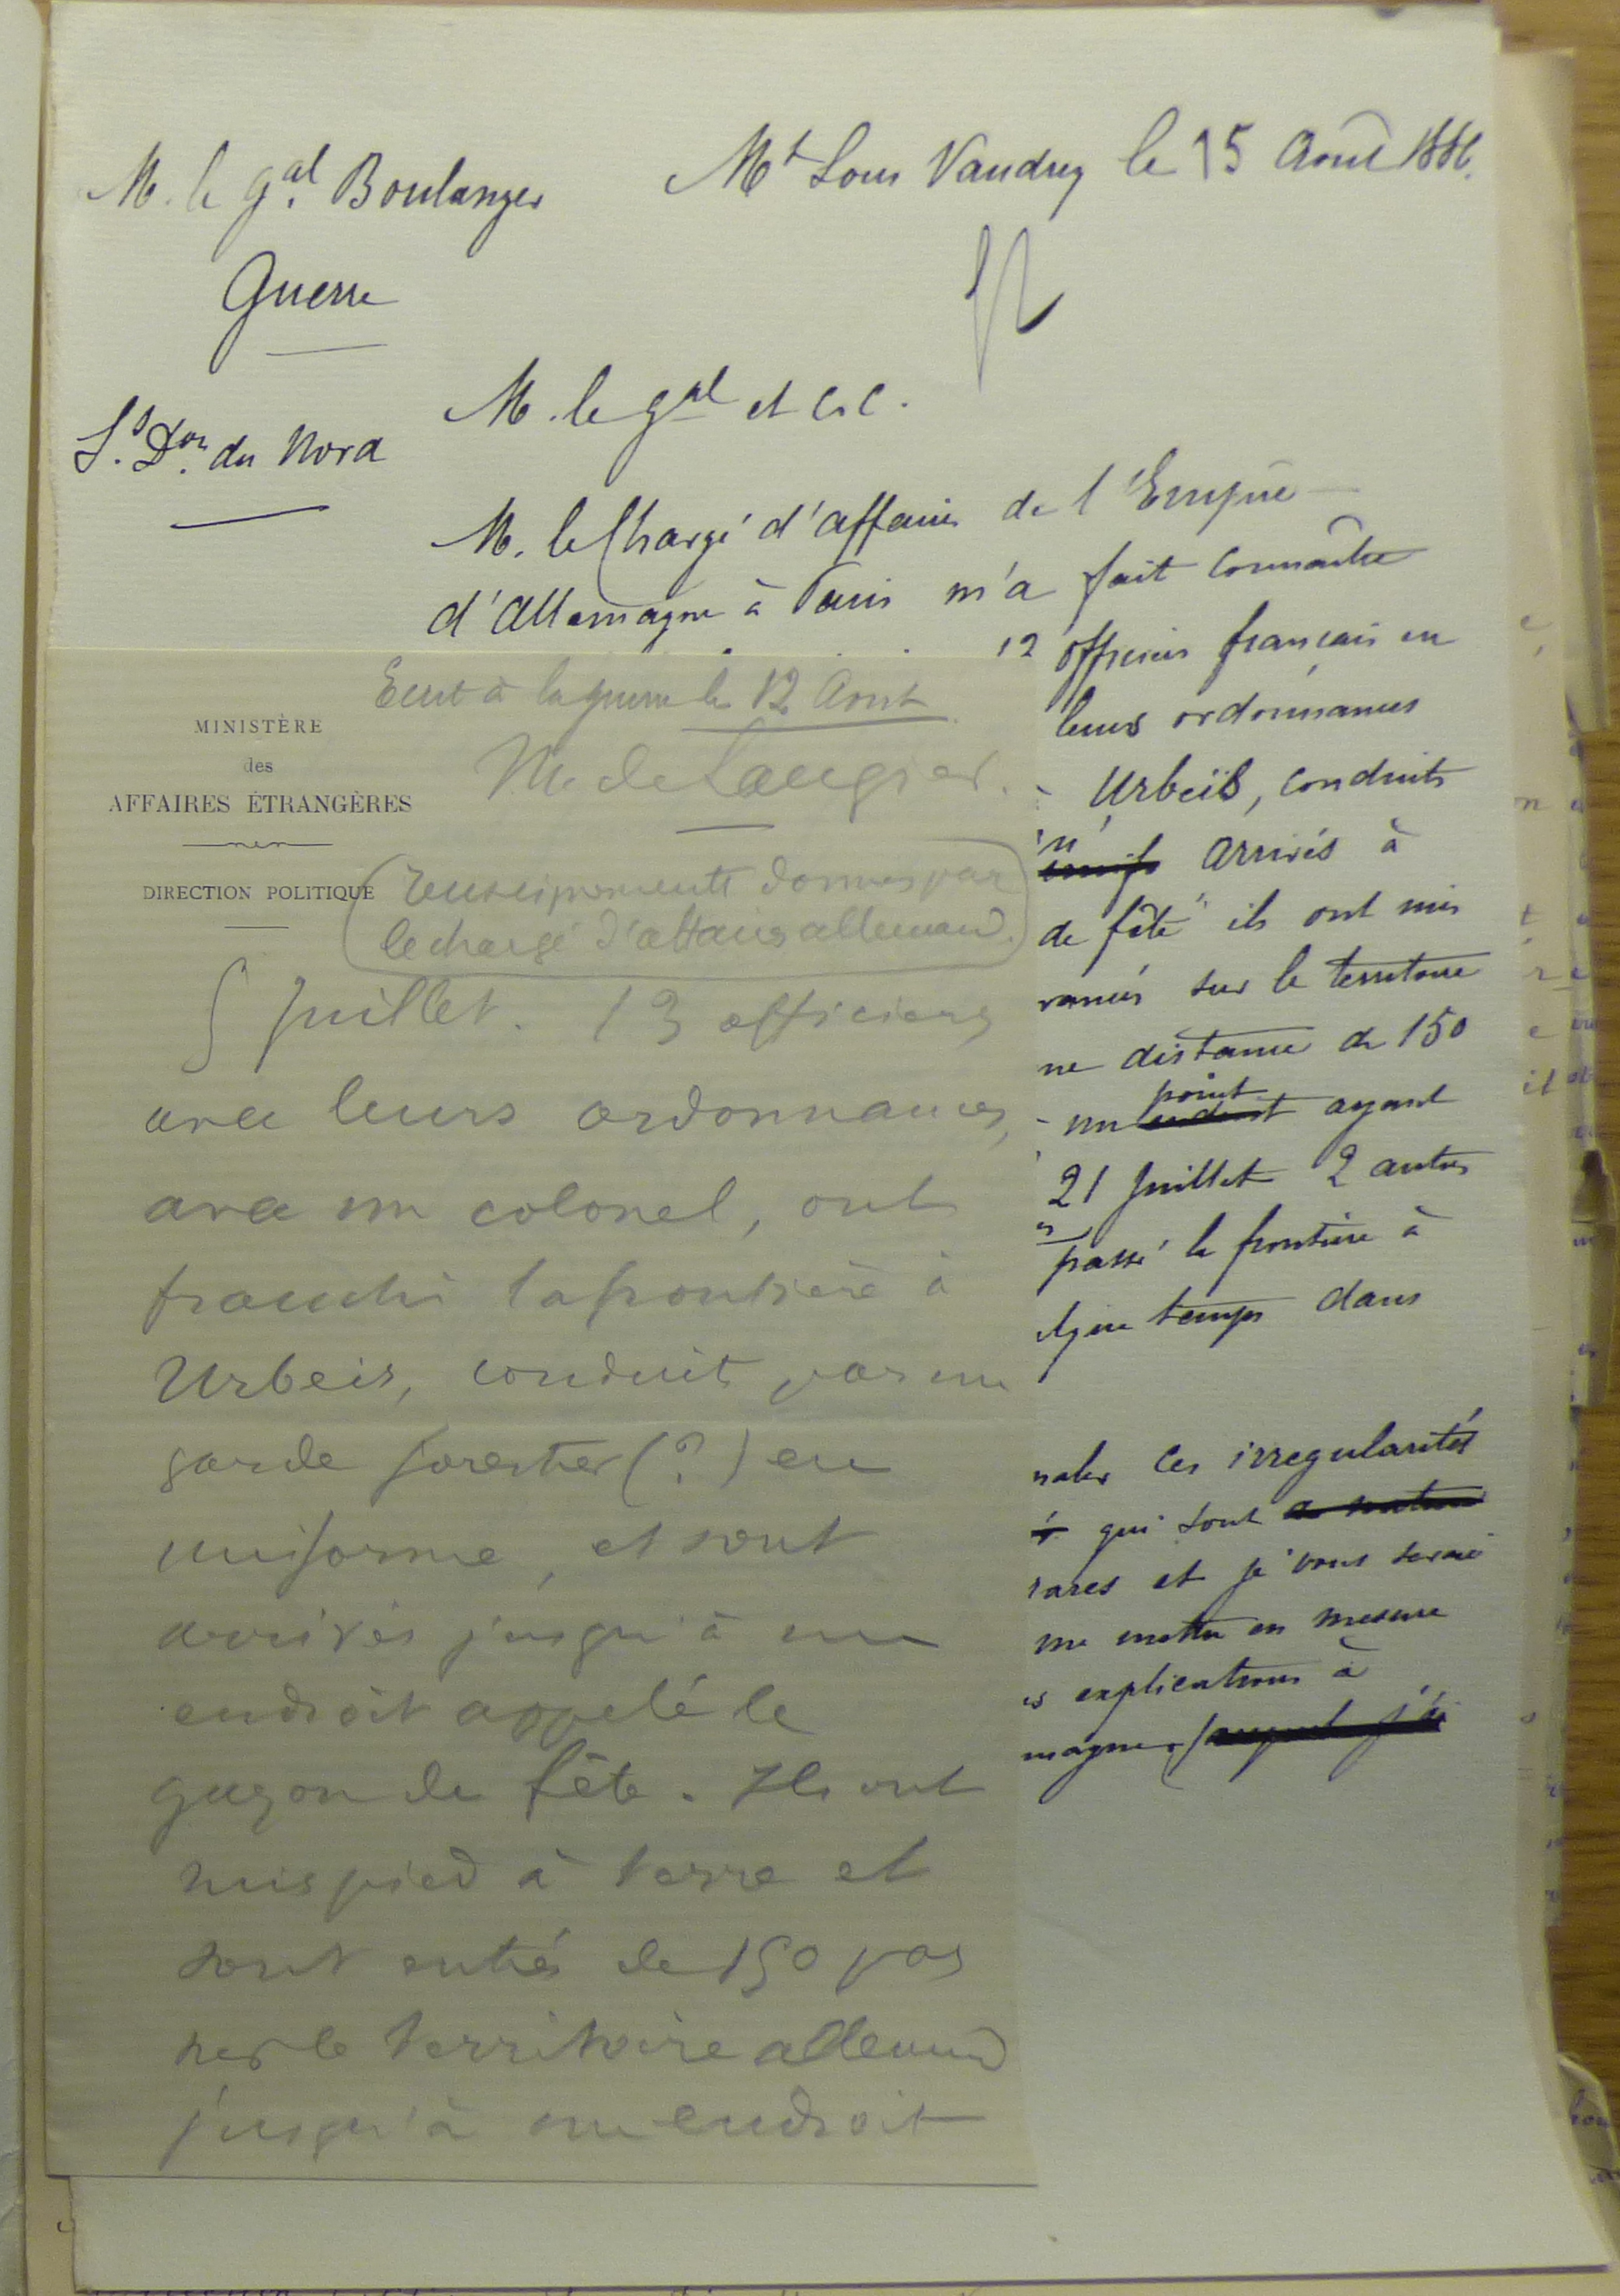 M. le Gal Boulanger
Guerre
Mt Sous Vaudrey le 15 Août 1886.
S.s Don du Nord
M. le gal et cs c.
M. le Chargé d'affaires de l'Empire
d'Allemagne à Paris m'a fait connaître
12 officiers français en
leurs ordonnances
Urbeïs, conduits
arrivés à
de fête" ils ont mis
vancés sur le territoire
ne distance de 150
point
un endroit ayant
21 Juillet 2 autres
passé la frontière à
elque temps dans
naler ces irregularités
qui sont
rares et je vous serais
me mettre en mesure
es explications à
magne auquel j'ai
Ecrit à la guerre le 12 Août
MINISTÈRE
des
AFFAIRES ÉTRANGÈRES
DIRECTION POLITIQUE
M. de Laugier.
(renseignements donnés par
le chargé d'affaires allemand.)
5 Juillet. 13 officiers
avec leurs ordonnances,
avec un colonel, ont
franchi la frontière à
Urbeis, conduits par un
garde forestier (?) en
uniforme, et sont
arrivés jusqu'à un
endroit appelé le
gazon de fête. Ils ont
mis pied à terre et
sont entrés de 150 pas
sur le territoire allemand
jusqu'à un endroit